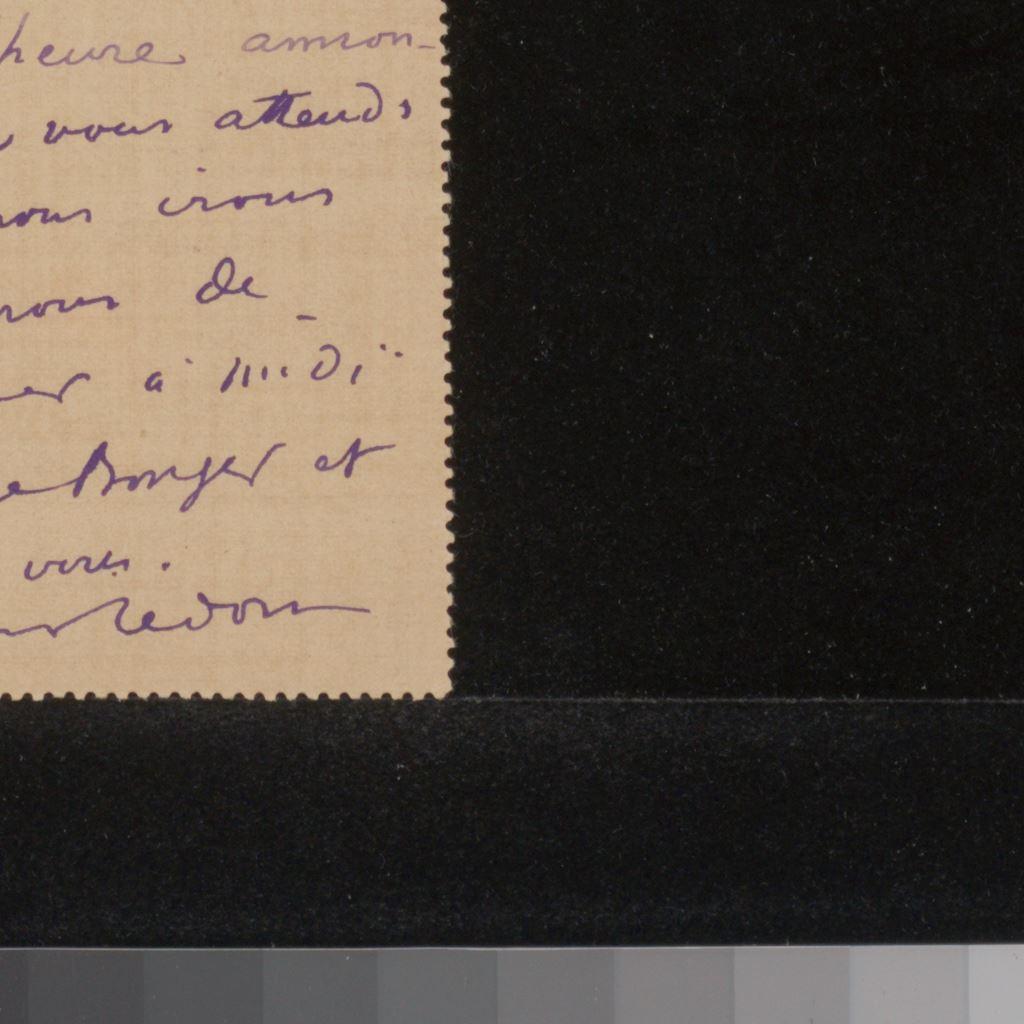 heure annon-
vous attends
nous irons
nous de
er à midi
e Bonger et
vous.
Redon